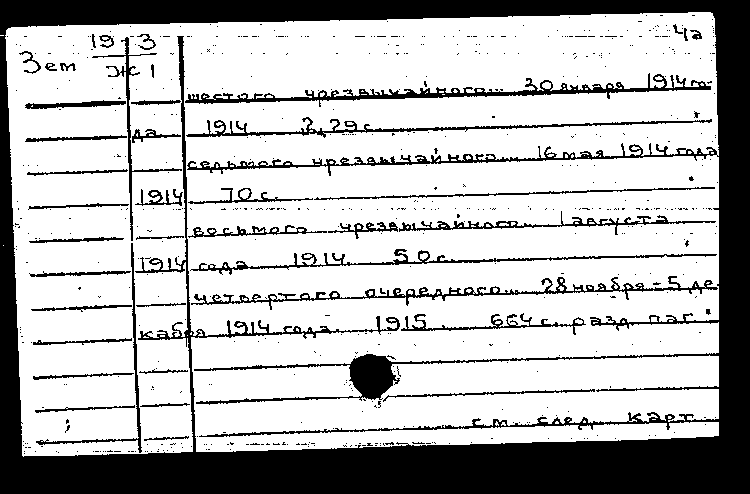 4а
Зет 19-3
Ж 1
шестого чрезвычайного... 30 января 1914 го-
да 1914 2,29 с.
седьмого чрезвычайного... 16 мая 1914 года
1914 70 с.
восьмого чрезвычайного... 1 августа
1914 года 1914 50 с.
четвертого очередного... 28 ноября-5 де
кабря 1914 года. 1915. 664 с. разд. паг.
см. след. карт.